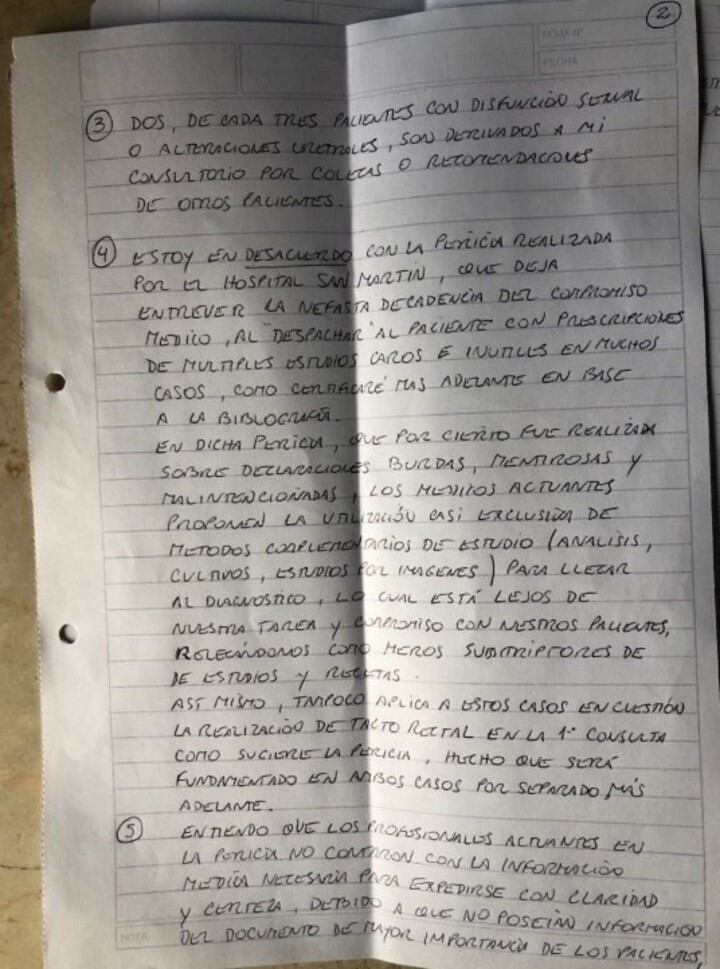 2
HOJA Nº
FECHA
3 DOS, DE CADA TRES PACIENTES CON DISFUNCIÓN SEXUAL
O ALTERACIONES URETRALES, SON DERIVADOS A MI
CONSULTORIO POR COLEGAS O RECOMENDACIONES
DE OTROS PACIENTES.
4 ESTOY EN DESACUERDO CON LA PERICIA REALIZADA
POR EL HOSPITAL SAN MARTIN, QUE DEJA
ENTREVER LA NEFASTA DECADENCIA DEL COMPROMISO
MEDICO, AL "DESPACHAR" AL PACIENTE CON PRESCRIPCIONES
DE MULTIPLES ESTUDIOS CAROS E INUTILES EN MUCHOS
CASOS, COMO CERTIFICARÉ MAS ADELANTE EN BASE
A LA BIBLOGRAFÍA.
EN DICHA PERICIA, QUE POR CIERTO FUE REALIZADA
SOBRE DECLARACIONES BURDAS, MENTIROSAS Y
MALINTENCIONADAS, LOS MEDICOS ACTUANTES
PROPONEN LA UTILIZACIÓN CASI EXCLUSIVA DE
METODOS COMPLEMENTARIOS DE ESTUDIO (ANALISIS,
CULTIVOS, ESTUDIOS POR IMAGENES) PARA LLEGAR
AL DIAGNOSTICO, LO CUAL ESTÁ LEJOS DE
NUESTRA TAREA Y COMPROMISO CON NESTROS PACIENTES,
RELEGÁNDONOS COMO MEROS SUSCRIPTORES DE
DE ESTUDIOS Y RECETAS.
ASÍ MISMO, TAMPOCO APLICA A ESTOS CASOS EN CUESTIÓN
LA REALIZACIÓN DE TACTO RECTAL EN LA 1º CONSULTA
COMO SUGIERE LA PERICIA, HECHO QUE SERÁ
FUNDAMENTADO EN AMBOS CASOS POR SEPARADO MÁS
ADELANTE.
5 ENTIENDO QUE LOS PROFESIONALES ACTUANTES EN
LA PERICIA NO CONTARON CON LA INFORMACIÓN
MEDICA NECESARIA PARA EXPEDIRSE CON CLARIDAD
Y CERTEZA, DEBIDO A QUE NO POSEÍAN INFORMACIÓN
NOTA
DEL DOCUMENTO DE MAYOR IMPORTANCIA DE LOS PACIENTES,